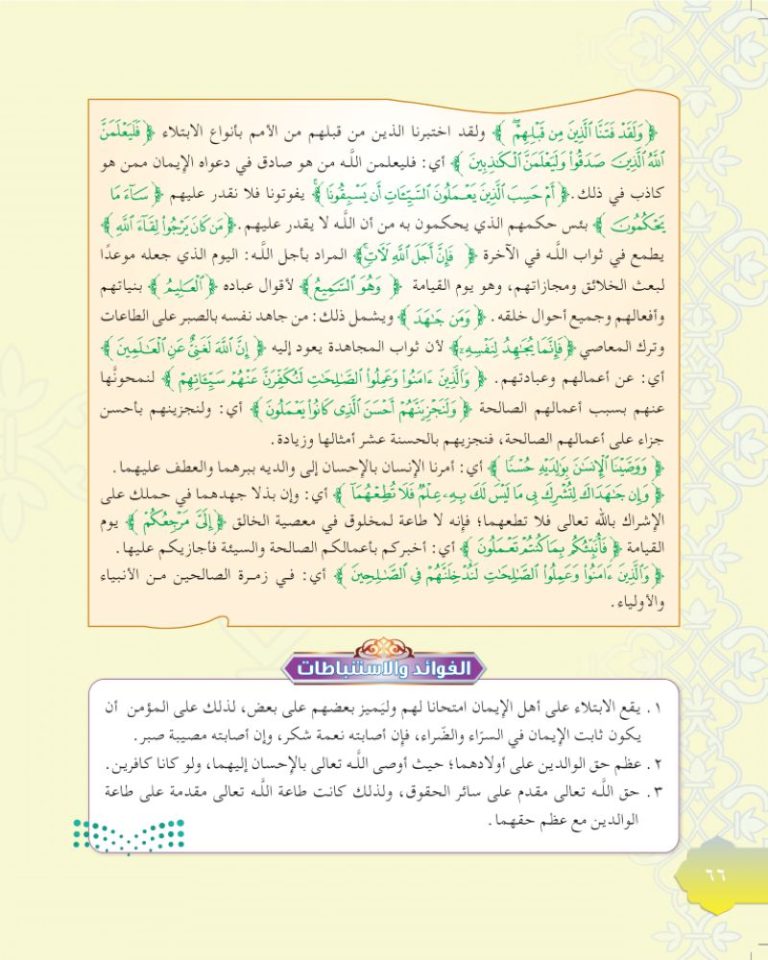 ﴿ وَلَقَدْ فَتَنَّا ٱلَّذِينَ مِن قَبْلِهِمْ ﴾ ولقد اختبرنا الذين من قبلهم من الأمم بأنواع الابتلاء ﴿ فَلَيَعْلَمَنَّ
ٱللَّهُ ٱلَّذِينَ صَدَقُوا۟ وَلَيَعْلَمَنَّ ٱلْكَـٰذِبِينَ ﴾ أي: فليعلمن اللَّه من هو صادق في دعواه الإيمان ممن هو
كاذب في ذلك. ﴿ أَمْ حَسِبَ ٱلَّذِينَ يَعْمَلُونَ ٱلسَّيِّـَٔاتِ أَن يَسْبِقُونَا ﴾ يفوتونا فلا نقدر عليهم ﴿ سَآءَ مَا
يَحْكُمُونَ ﴾ بئس حكمهم الذي يحكمون به من أن اللَّه لا يقدر عليهم. ﴿ مَن كَانَ يَرْجُوا۟ لِقَآءَ ٱللَّهِ ﴾
يطمع في ثواب اللَّه في الآخرة ﴿ فَإِنَّ أَجَلَ ٱللَّهِ لَـَٔاتٍ ﴾ المراد بأجل اللَّه: اليوم الذي جعله موعدًا
لبعث الخلائق ومجازاتهم، وهو يوم القيامة ﴿ وَهُوَ ٱلسَّمِيعُ ﴾ لأقوال عباده ﴿ ٱلْعَلِيمُ ﴾ بنياتهم
وأفعالهم وجميع أحوال خلقه. ﴿ وَمَن جَـٰهَدَ ﴾ ويشمل ذلك: من جاهد نفسه بالصبر على الطاعات
وترك المعاصي ﴿ فَإِنَّمَا يُجَـٰهِدُ لِنَفْسِهِۦٓ ﴾ لأن ثواب المجاهدة يعود إليه ﴿ إِنَّ ٱللَّهَ لَغَنِىٌّ عَنِ ٱلْعَـٰلَمِينَ ﴾
أي: عن أعمالهم وعبادتهم. ﴿ وَٱلَّذِينَ ءَامَنُوا۟ وَعَمِلُوا۟ ٱلصَّـٰلِحَـٰتِ لَنُكَفِّرَنَّ عَنْهُمْ سَيِّـَٔاتِهِمْ ﴾ لنمحونَّها
عنهم بسبب أعمالهم الصالحة ﴿ وَلَنَجْزِيَنَّهُمْ أَحْسَنَ ٱلَّذِى كَانُوا۟ يَعْمَلُونَ ﴾ أي: ولنجزينهم بأحسن
جزاء على أعمالهم الصالحة، فنجزيهم بالحسنة عشر أمثالها وزيادة.
﴿ وَوَصَّيْنَا ٱلْإِنسَـٰنَ بِوَٰلِدَيْهِ حُسْنًا ﴾ أي: أمرنا الإنسان بالإحسان إلى والديه ببرهما والعطف عليهما.
﴿ وَإِن جَـٰهَدَاكَ لِتُشْرِكَ بِى مَا لَيْسَ لَكَ بِهِۦ عِلْمٌ فَلَا تُطِعْهُمَآ ﴾ أي: وإن بذلا جهدهما في حملك على
الإشراك بالله تعالى فلا تطعهما؛ فإنه لا طاعة لمخلوق في معصية الخالق ﴿ إِلَىَّ مَرْجِعُكُمْ ﴾ يوم
القيامة ﴿ فَأُنَبِّئُكُم بِمَا كُنتُمْ تَعْمَلُونَ ﴾ أي: أخبركم بأعمالكم الصالحة والسيئة فأجازيكم عليها.
﴿ وَٱلَّذِينَ ءَامَنُوا۟ وَعَمِلُوا۟ ٱلصَّـٰلِحَـٰتِ لَنُدْخِلَنَّهُمْ فِى ٱلصَّـٰلِحِينَ ﴾ أي: في زمرة الصالحين من الأنبياء
والأولياء.
الفوائد والاستنباطات
١. يقع الابتلاء على أهل الإيمان امتحانا لهم وليَميز بعضهم على بعض، لذلك على المؤمن أن
يكون ثابت الإيمان في السرّاء والضّراء، فإن أصابته نعمة شكر، وإن أصابته مصيبة صبر.
٢. عظم حق الوالدين على أولادهما؛ حيث أوصى اللَّه تعالى بالإحسان إليهما، ولو كانا كافرين.
٣. حق اللَّه تعالى مقدم على سائر الحقوق، ولذلك كانت طاعة اللَّه تعالى مقدمة على طاعة
الوالدين مع عظم حقهما.
٦٦